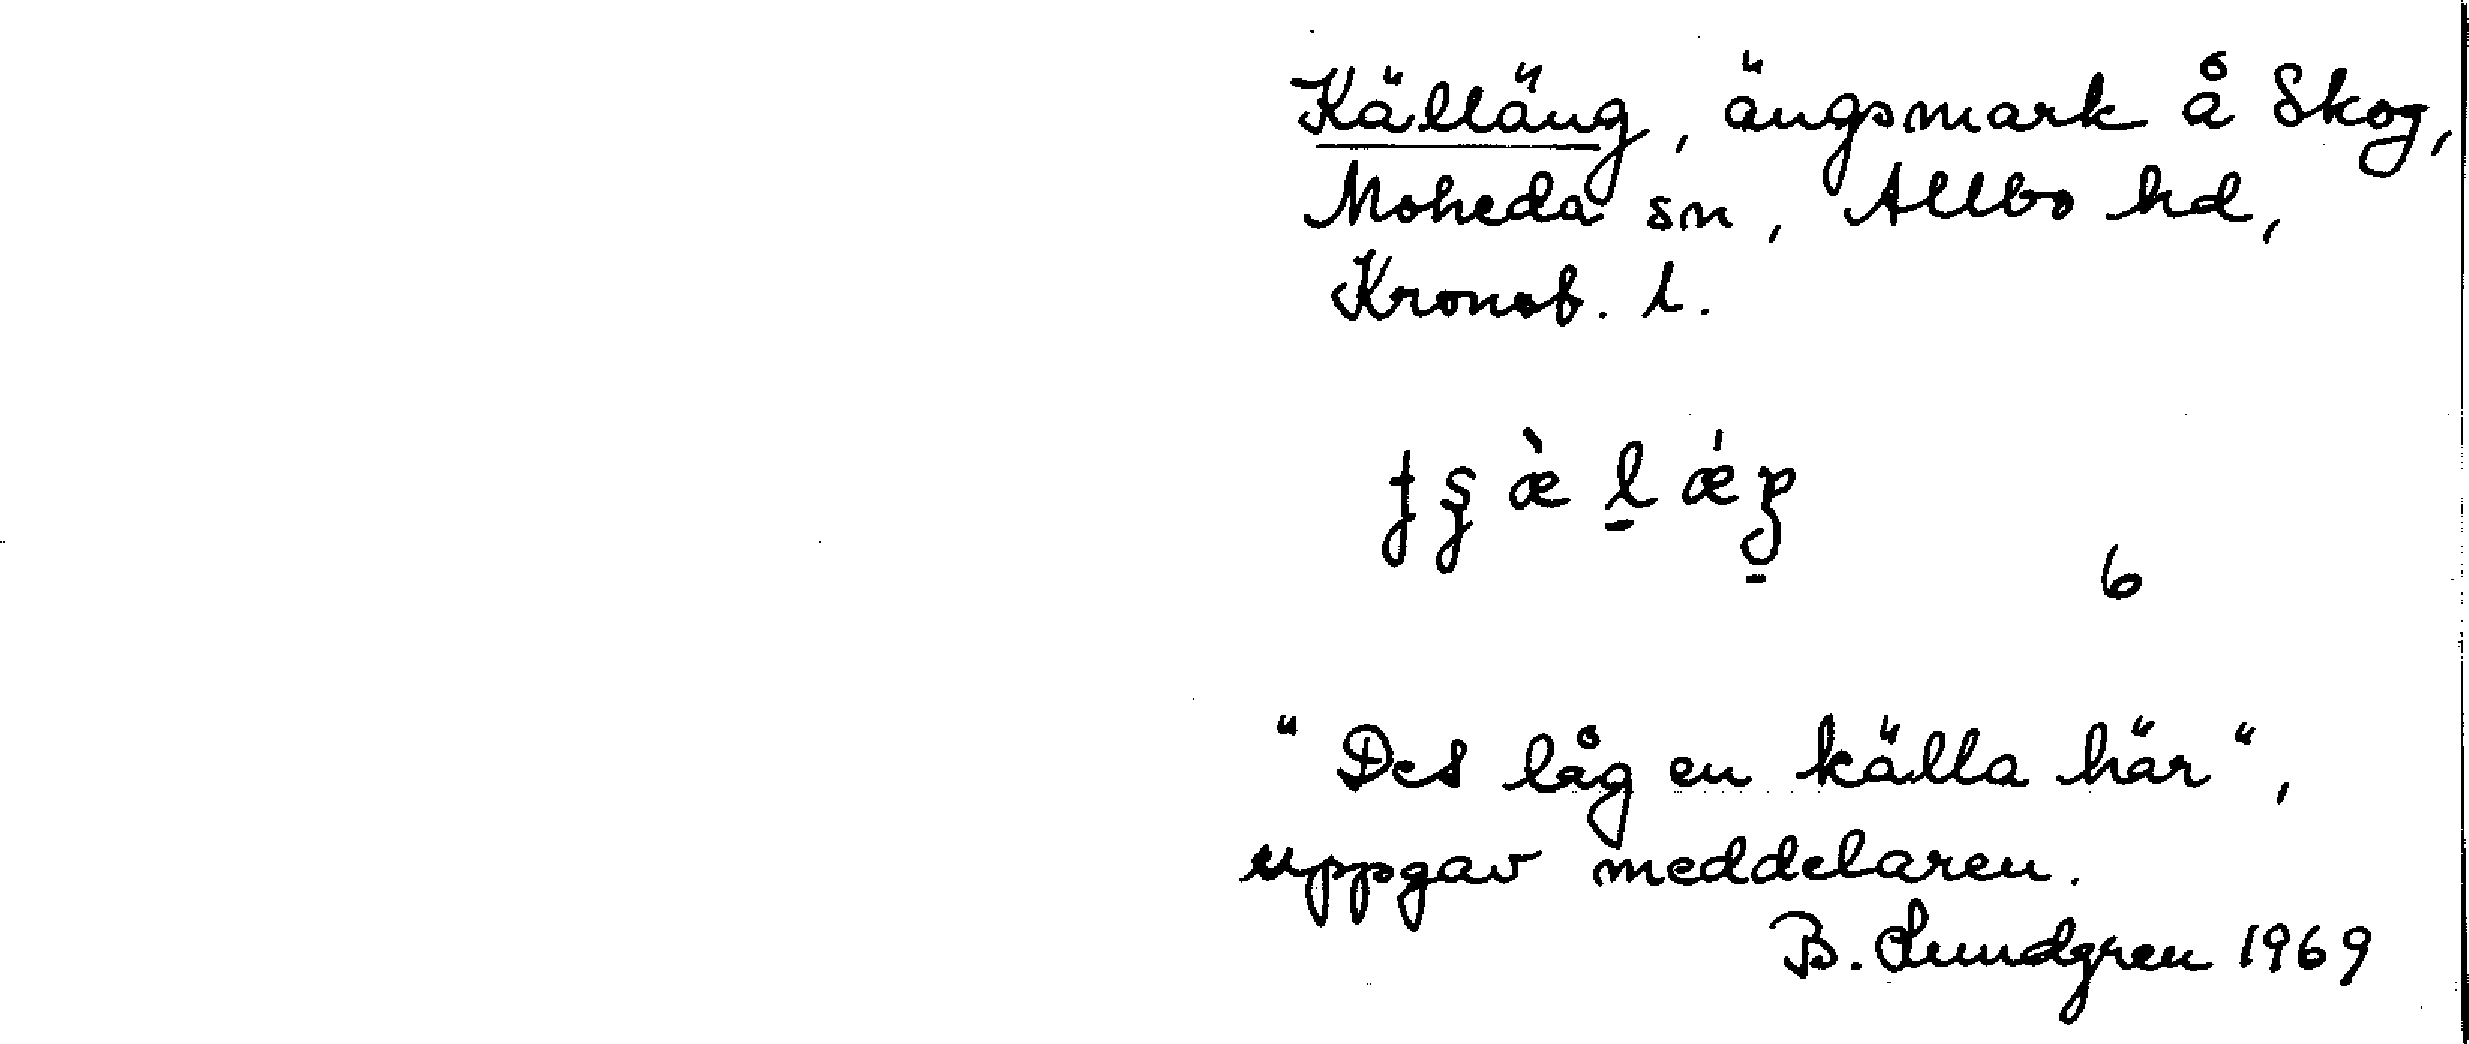 Källäng, ängsmark å Skog,
Moheda sn, Allbo hd,
Kronob. l.
6
"Det låg en källa här",
uppgav meddelaren.
B. Lundgren 1969